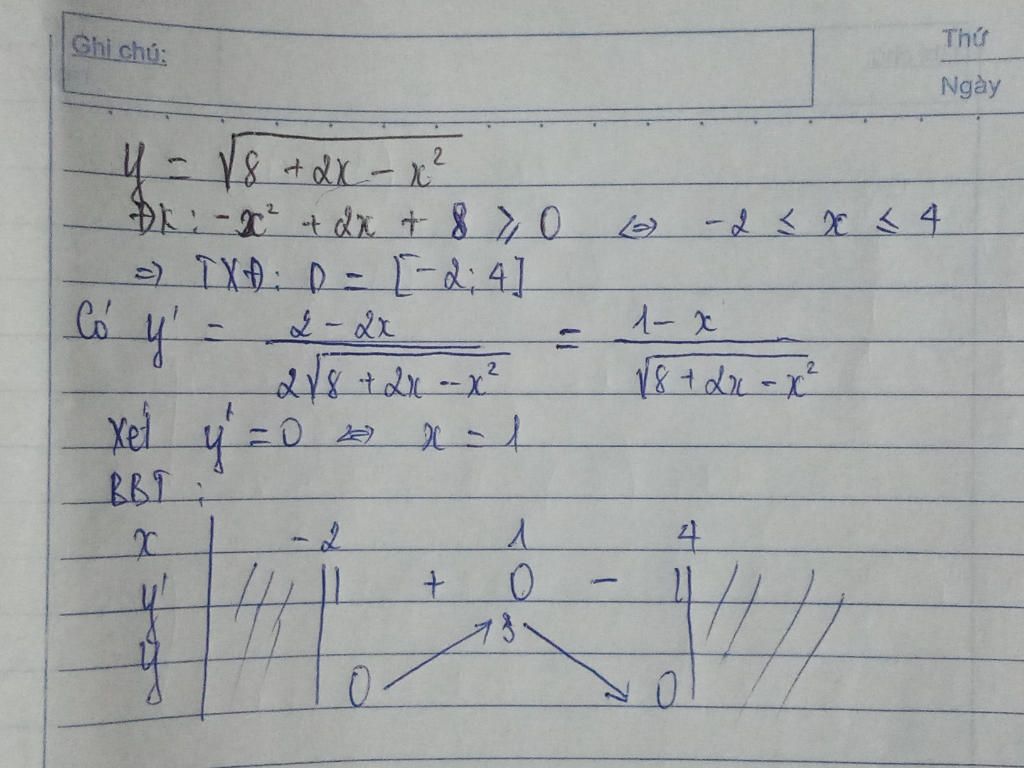 Ghi chú:
Thứ
Ngày
y = √(8 + 2x - x²)
ĐK: -x² + 2x + 8 ⩾ 0 ⇔ -2 ≤ x ≤ 4
⇒ TXĐ: D = [-2; 4]
Có y' = (2 - 2x)/(2√(8 + 2x - x²)) = (1 - x)/√(8 + 2x - x²)
Xét y' = 0 ⇔ x = 1
BBT:
x -2 1 4
y' || + 0 - ||
y 0 ↗ 3 ↘ 0